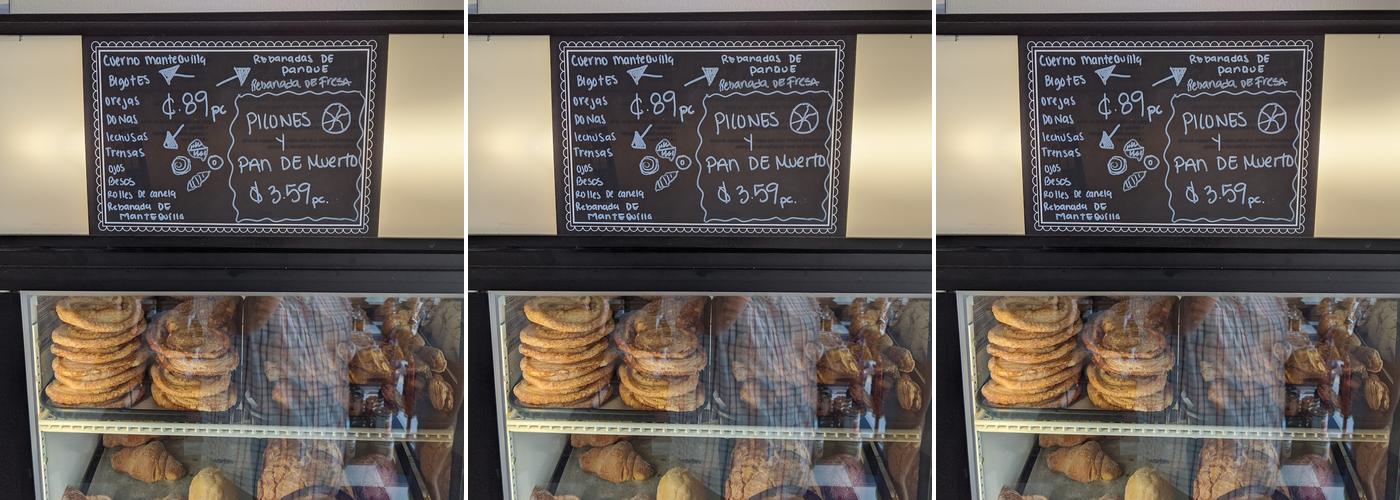 Cuerno Mantequilla
Bigotes
Orejas
Donas
lechusas
Trensas
Ojos
Besos
Rolles de canela
Rebanada DE
MANTEquilla
¢.89 pc
Rebanadas DE
panque
Rebanada DE Fresa
PILONES
Y
PAN DE Muerto
$ 3.59 pc.
Cuerno Mantequilla
Bigotes
Orejas
Donas
lechusas
Trensas
Ojos
Besos
Rolles de canela
Rebanada DE
MANTEquilla
¢.89 pc
Rebanadas DE
panque
Rebanada DE Fresa
PILONES
Y
PAN DE Muerto
$ 3.59 pc.
Cuerno Mantequilla
Bigotes
Orejas
Donas
lechusas
Trensas
Ojos
Besos
Rolles de canela
Rebanada DE
MANTEquilla
¢.89 pc
Rebanadas DE
panque
Rebanada DE Fresa
PILONES
Y
PAN DE Muerto
$ 3.59 pc.